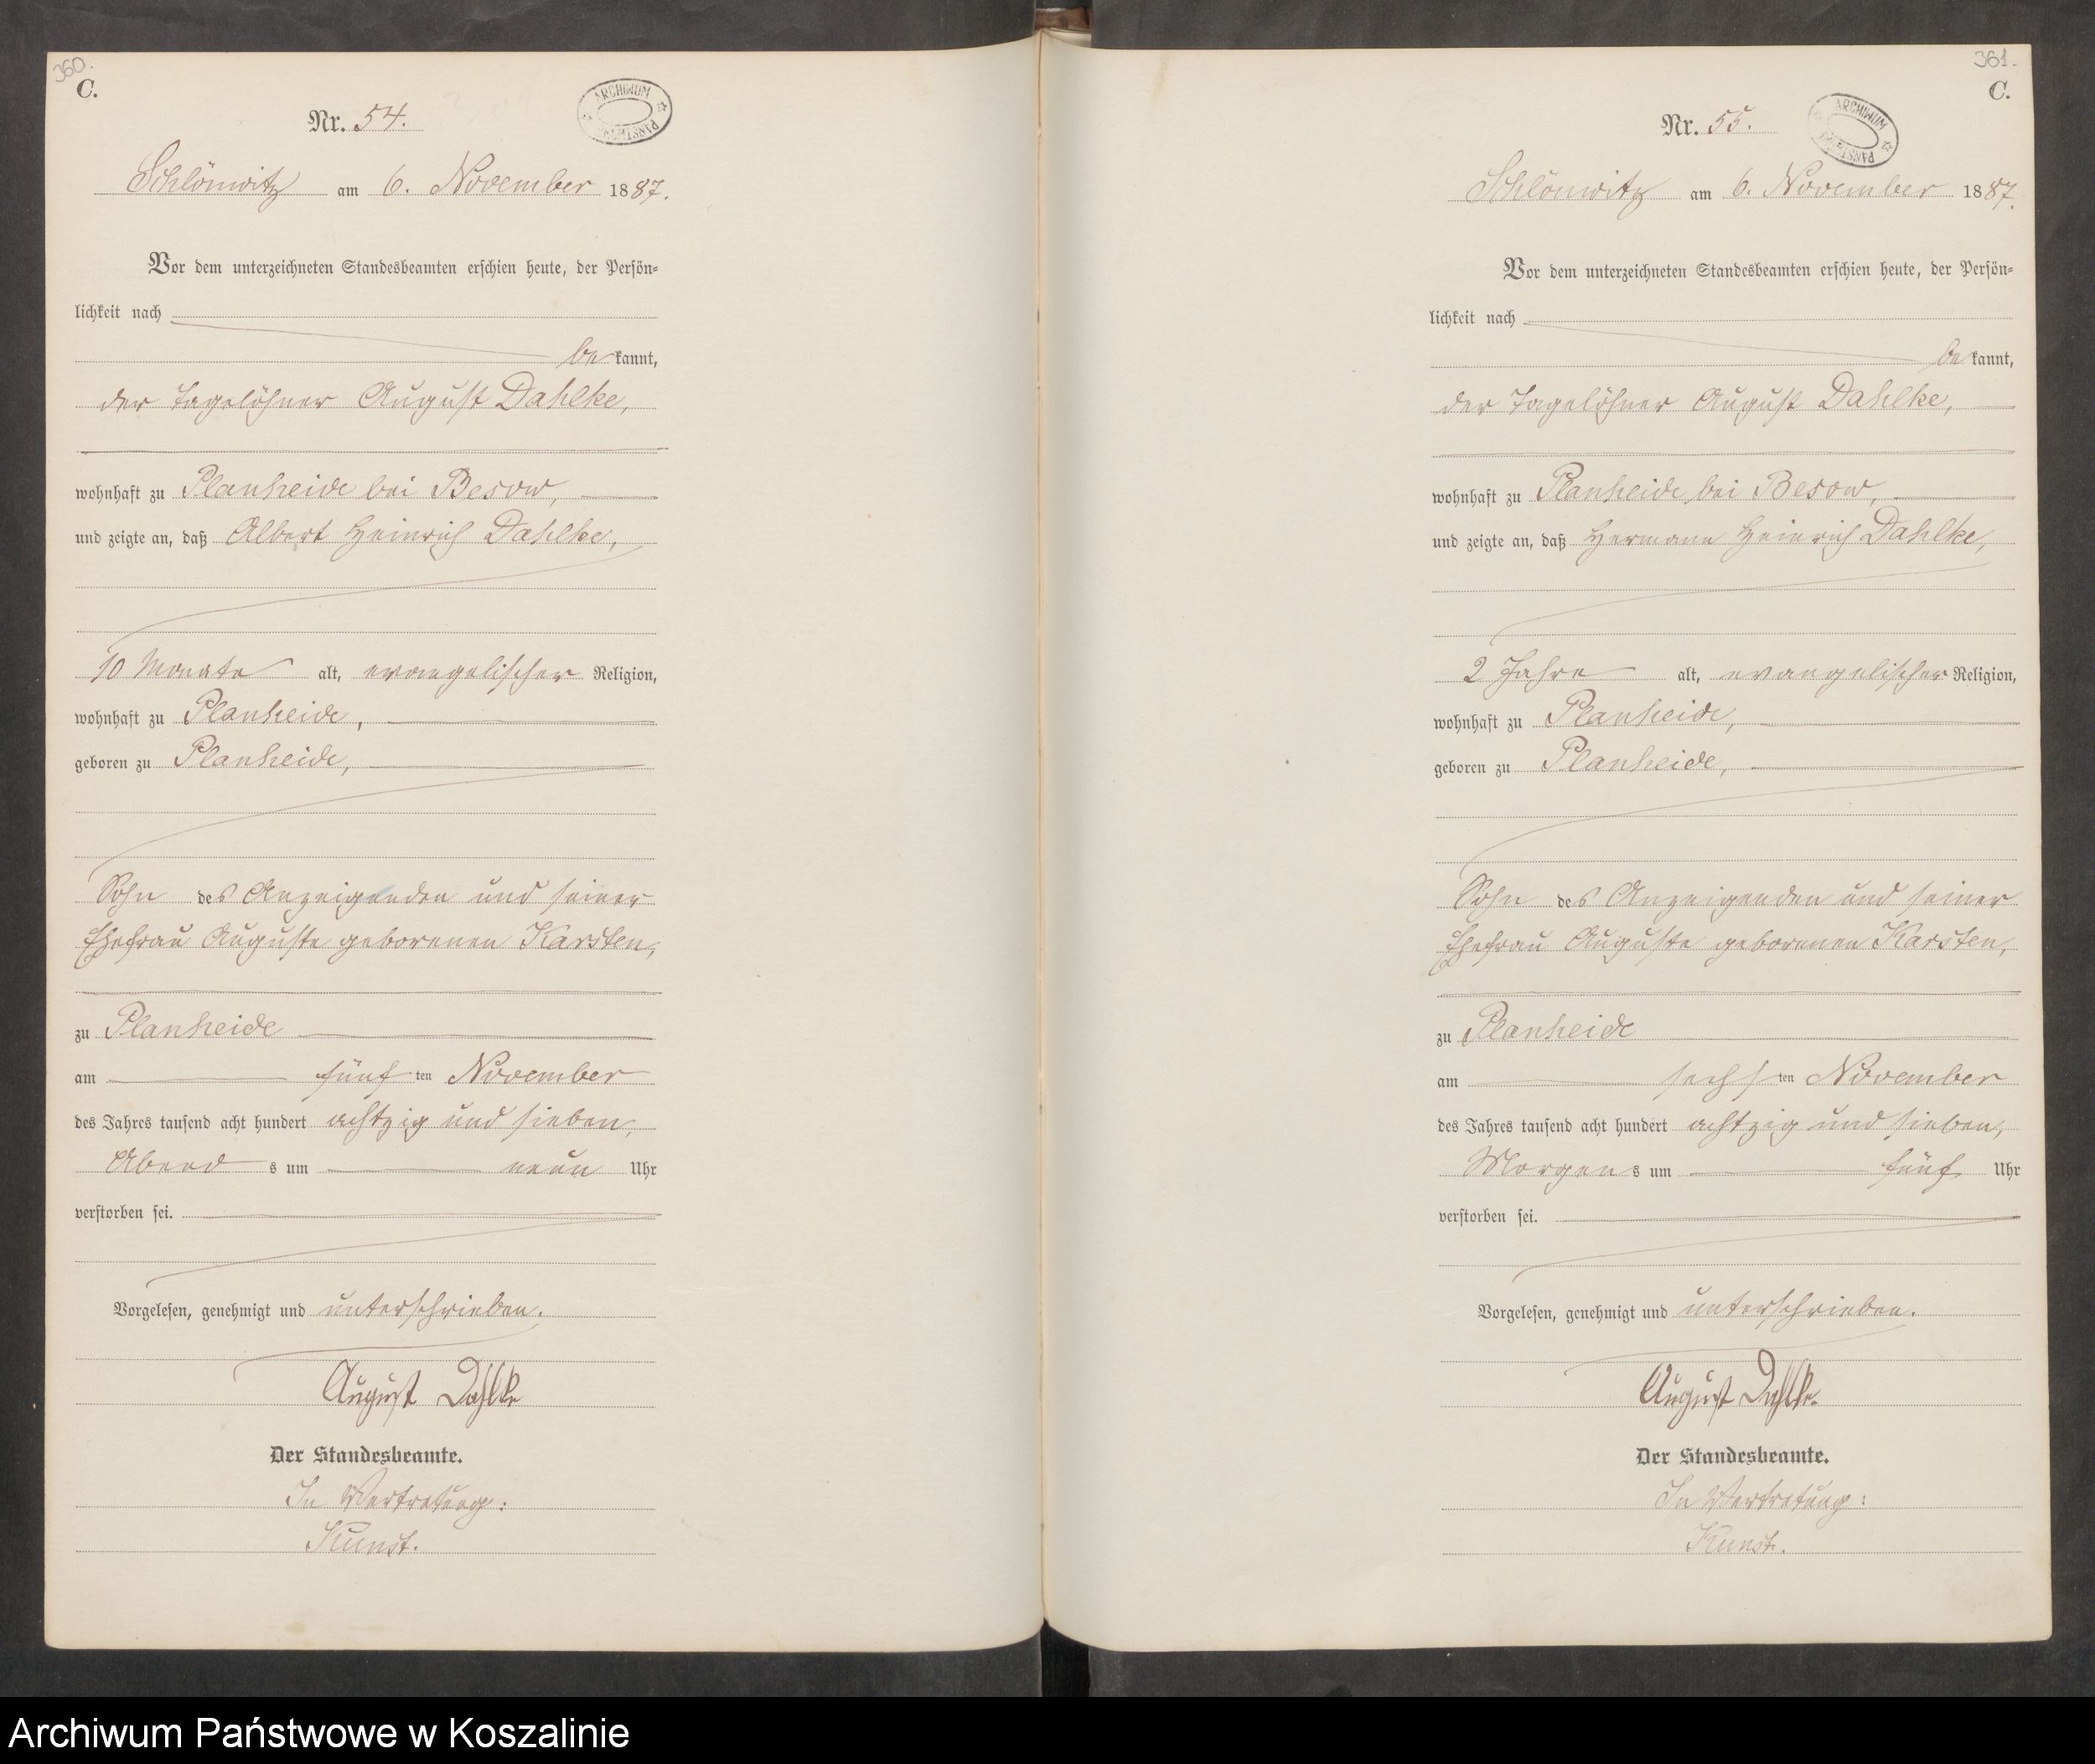 360.
C.
Nr. 54.
ARCHIWUM PAŃSTWOWE
Schlönwitz am 6. November 1887.
Vor dem unterzeichneten Standesbeamten erschien heute, der Persön-
lichkeit nach
be kannt,
der Tagelöhner August Dahlke,
wohnhaft zu Planheide bei Besow,
und zeigte an, daß Albert Heinrich Dahlke,
10 Monate alt, evangelischer Religion,
wohnhaft zu Planheide,
geboren zu Planheide,
Sohn des Anzeigenden und seiner
Ehefrau Auguste geborenen Karsten,
zu Planheide
am fünf ten November
des Jahres tausend acht hundert achtzig und sieben,
Abend s um neun Uhr
verstorben sei.
Vorgelesen, genehmigt und unterschrieben.
August Dahlke
Der Standesbeamte.
In Vertretung:
Kunst.
361.
C.
Nr. 55.
ARCHIWUM PAŃSTWOWE
Schlönwitz am 6. November 1887.
Vor dem unterzeichneten Standesbeamten erschien heute, der Persön-
lichkeit nach
be kannt,
der Tagelöhner August Dahlke,
wohnhaft zu Planheide bei Besow,
und zeigte an, daß Hermann Heinrich Dahlke,
2 Jahre alt, evangelischer Religion,
wohnhaft zu Planheide,
geboren zu Planheide,
Sohn des Anzeigenden und seiner
Ehefrau Auguste geborenen Karsten,
zu Planheide
am sechs ten November
des Jahres tausend acht hundert achtzig und sieben,
Morgen s um fünf Uhr
verstorben sei.
Vorgelesen, genehmigt und unterschrieben.
August Dahlke.
Der Standesbeamte.
In Vertretung:
Kunst.
Archiwum Państwowe w Koszalinie